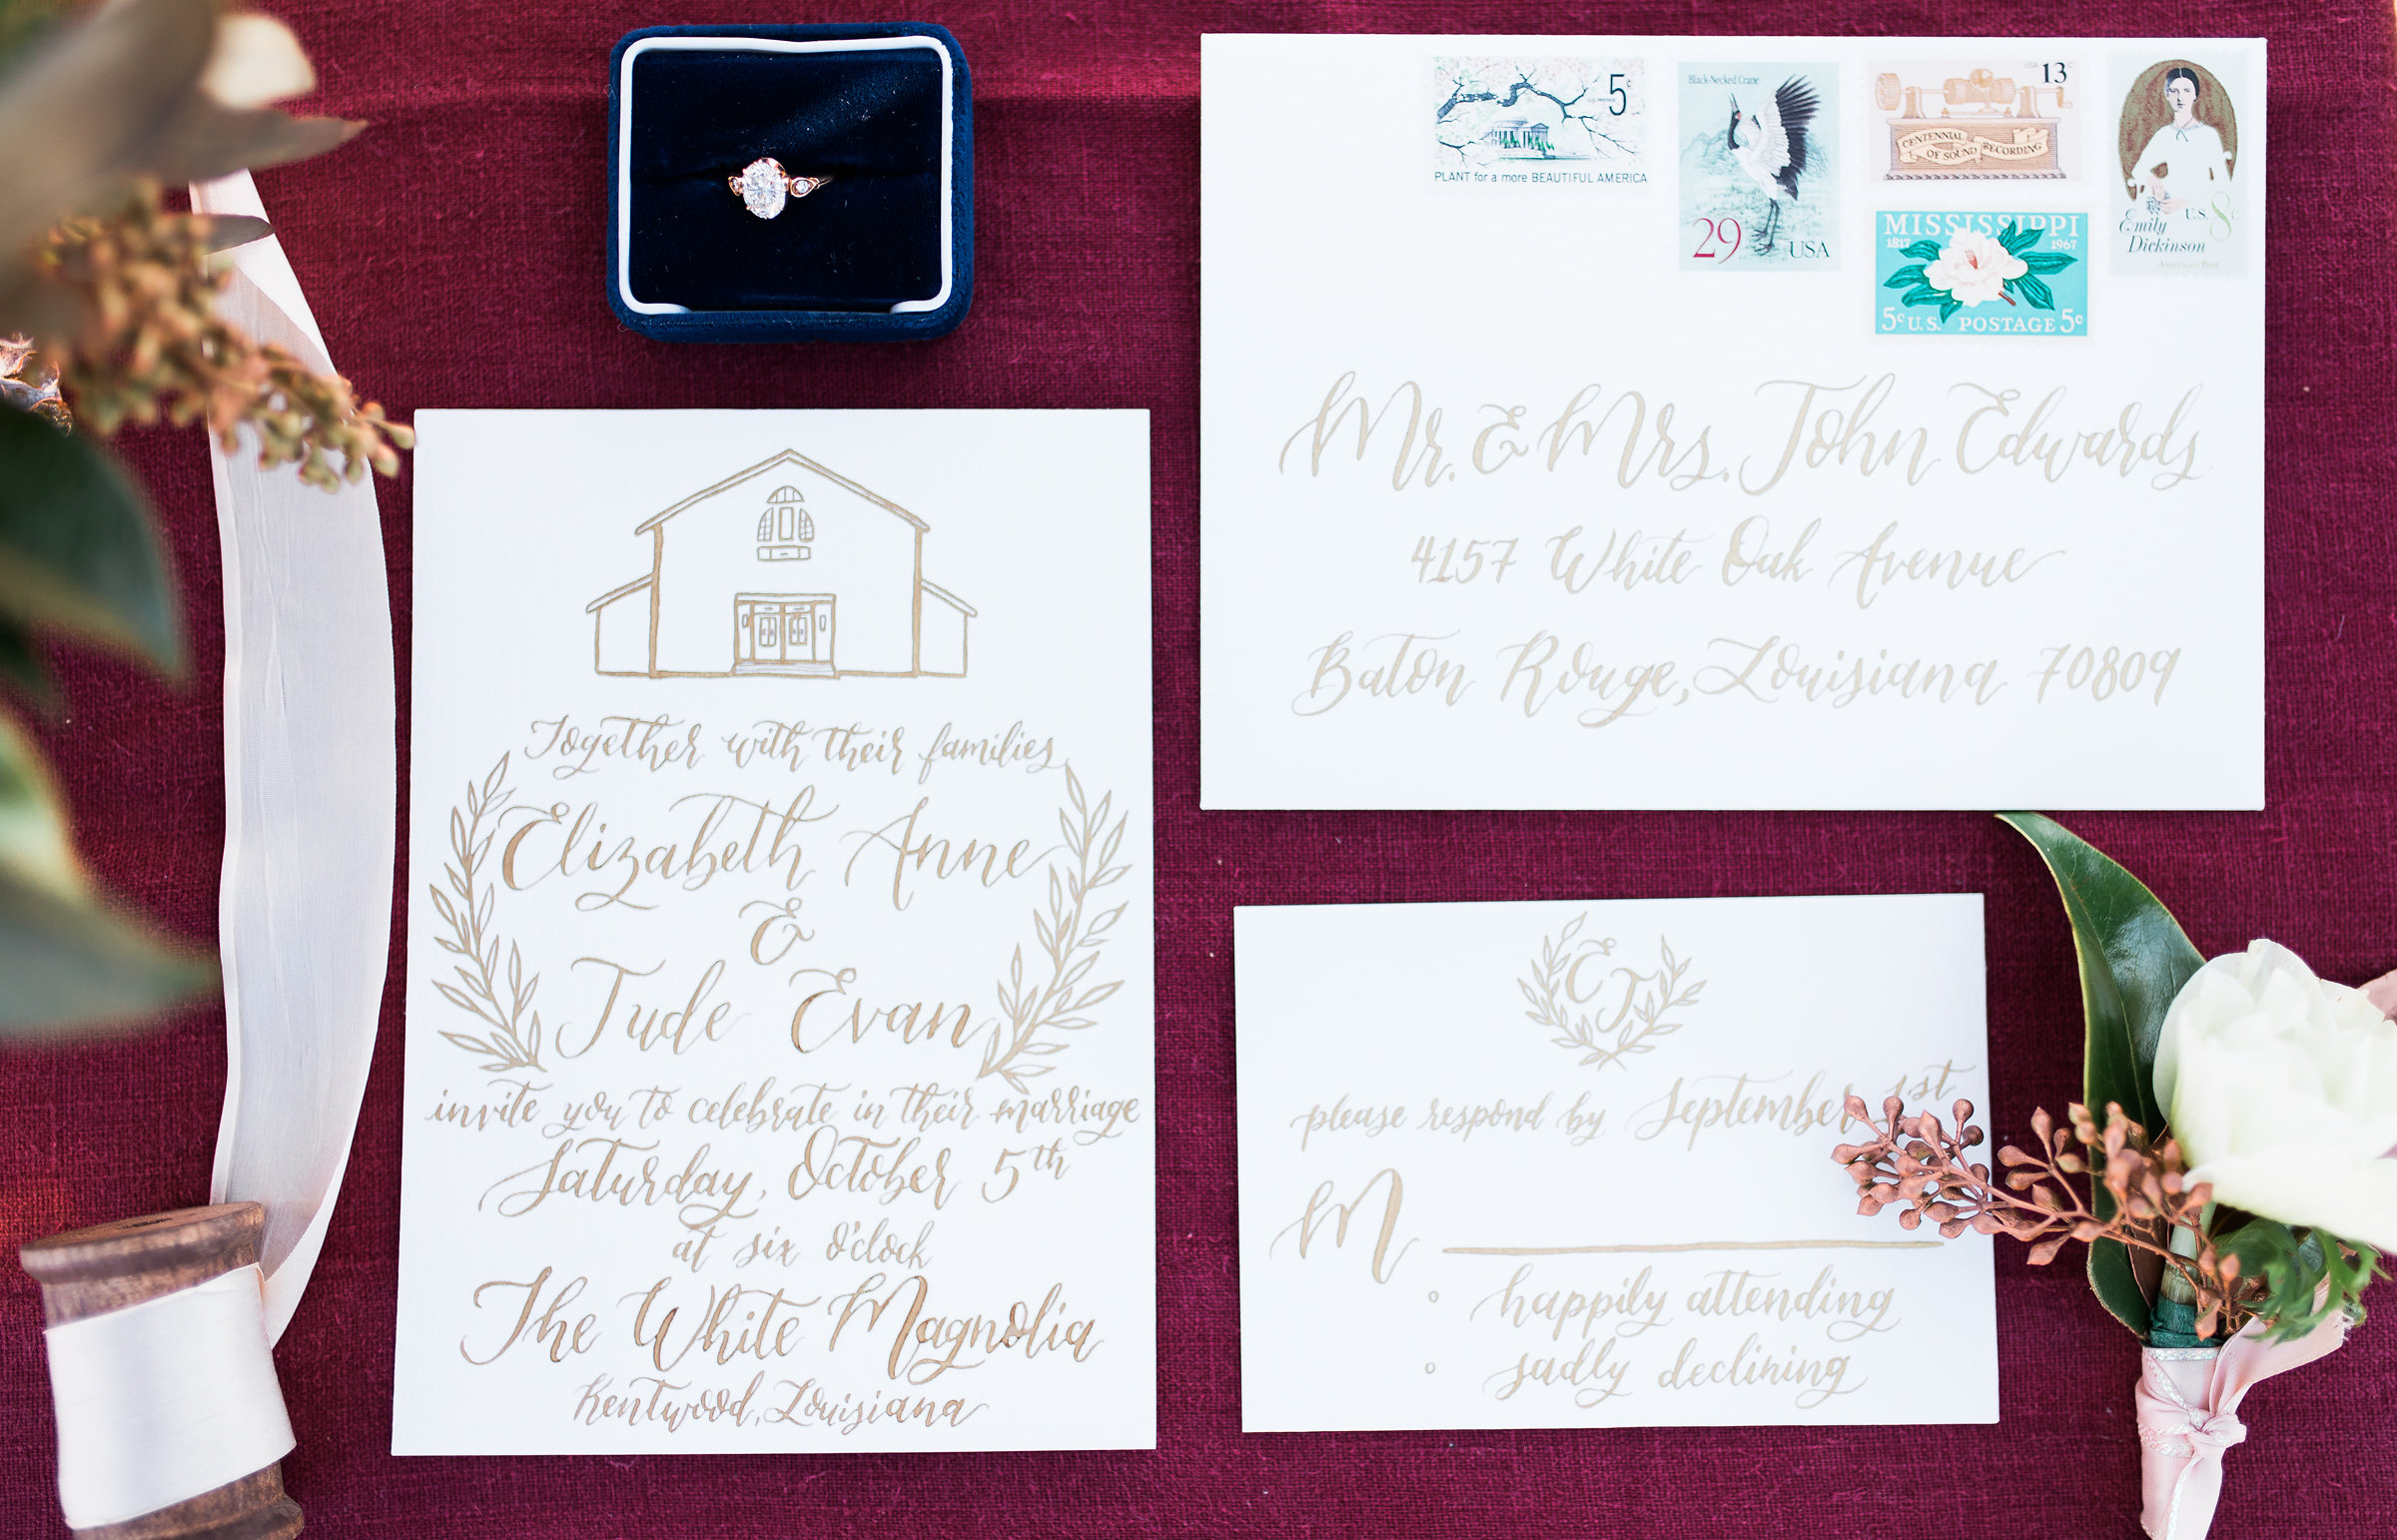 Together with their families
Elizabeth Anne
&
Jude Evan
invite you to celebrate in their marriage
Saturday, October 5th
at six o'clock
The White Magnolia
Kentwood, Louisiana
5c
PLANT for a more BEAUTIFUL AMERICA
Black-Necked Crane
29 USA
USA 13c
CENTENNIAL
OF SOUND RECORDING
MISSISSIPPI
1817 1967
5c U.S. POSTAGE 5c
U.S. 8c
Emily
Dickinson
American Poet
Mr. & Mrs. John Edwards
4157 White Oak Avenue
Baton Rouge, Louisiana 70809
E J
please respond by September 1st
M
happily attending
sadly declining